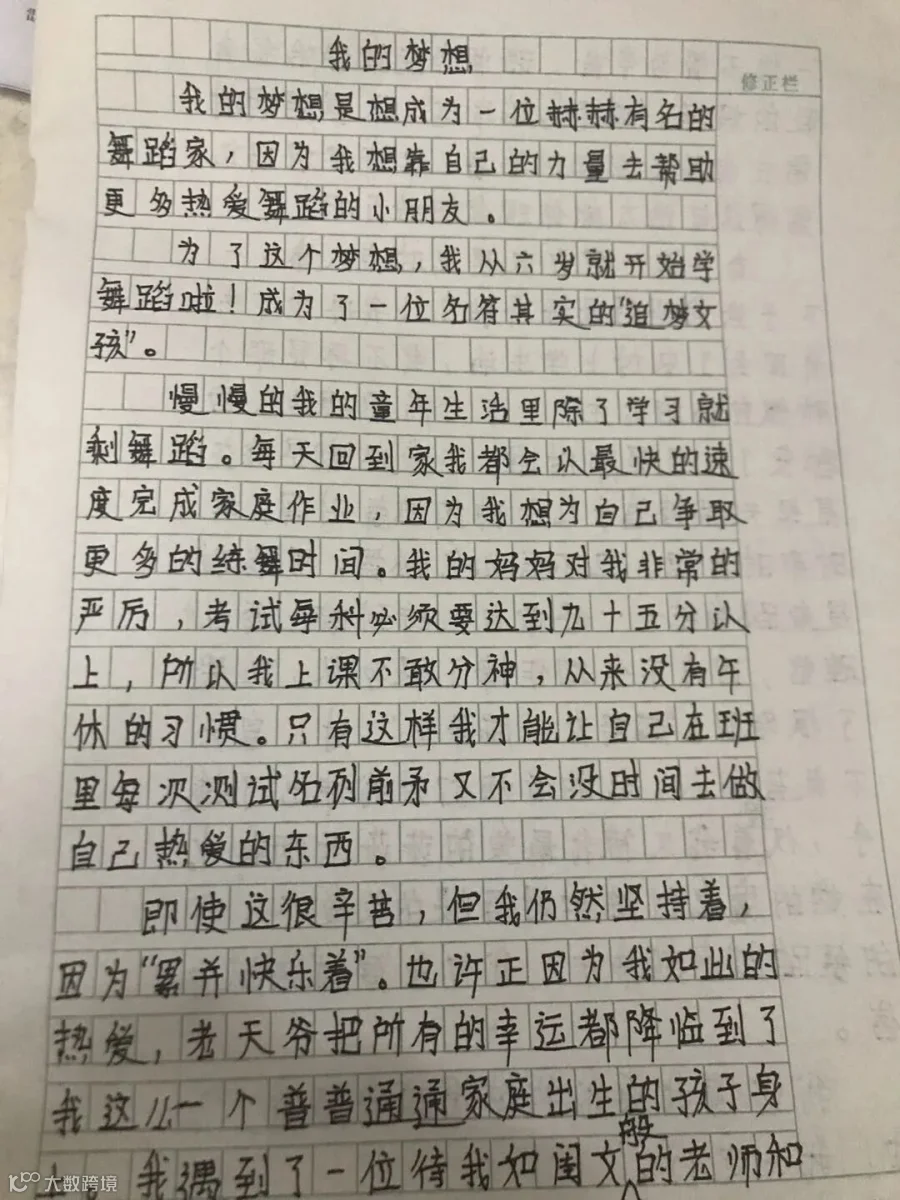 修正栏
我的梦想
我的梦想是想成为一位赫赫有名的
舞蹈家，因为我想靠自己的力量去帮助
更多热爱舞蹈的小朋友。
为了这个梦想，我从六岁就开始学
舞蹈啦！成为了一位名符其实的“追梦女
孩”。
慢慢的我的童年生活里除了学习就
剩舞蹈。每天回到家我都会以最快的速
度完成家庭作业，因为我想为自己争取
更多的练舞时间。我的妈妈对我非常的
严厉，考试每科必须要达到九十五分以
上，所以我上课不敢分神，从来没有午
休的习惯。只有这样我才能让自己在班
里每次测试名列前矛又不会没时间去做
自己热爱的东西。
即使这很辛苦，但我仍然坚持着，
因为“累并快乐着”。也许正因为我如此的
热爱，老天爷把所有的幸运都降临到了
我这么一个普普通通家庭出生的孩子身
上，我遇到了一位待我如闺女般的老师和
大数跨境